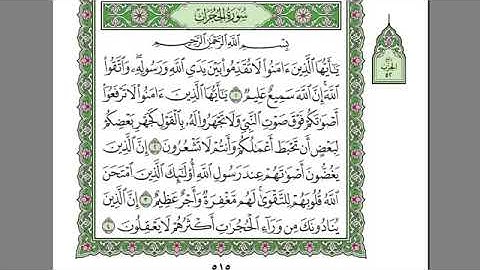 سُورَةُ الحُجُرَاتِ
بِسْمِ اللَّهِ الرَّحْمَٰنِ الرَّحِيمِ
يَٰٓأَيُّهَا الَّذِينَ ءَامَنُوا۟ لَا تُقَدِّمُوا۟ بَيْنَ يَدَىِ اللَّهِ وَرَسُولِهِۦ ۖ وَاتَّقُوا۟
اللَّهَ ۚ إِنَّ اللَّهَ سَمِيعٌ عَلِيمٌ ١ يَٰٓأَيُّهَا الَّذِينَ ءَامَنُوا۟ لَا تَرْفَعُوٓا۟
أَصْوَٰتَكُمْ فَوْقَ صَوْتِ النَّبِىِّ وَلَا تَجْهَرُوا۟ لَهُۥ بِالْقَوْلِ كَجَهْرِ بَعْضِكُمْ
لِبَعْضٍ أَن تَحْبَطَ أَعْمَٰلُكُمْ وَأَنتُمْ لَا تَشْعُرُونَ ٢ إِنَّ الَّذِينَ
يَغُضُّونَ أَصْوَٰتَهُمْ عِندَ رَسُولِ اللَّهِ أُو۟لَٰٓئِكَ الَّذِينَ امْتَحَنَ
اللَّهُ قُلُوبَهُمْ لِلتَّقْوَىٰ ۚ لَهُم مَّغْفِرَةٌ وَأَجْرٌ عَظِيمٌ ٣ إِنَّ الَّذِينَ
يُنَادُونَكَ مِن وَرَآءِ الْحُجُرَٰتِ أَكْثَرُهُمْ لَا يَعْقِلُونَ ٤
الحزب
٥٢
٥١٥